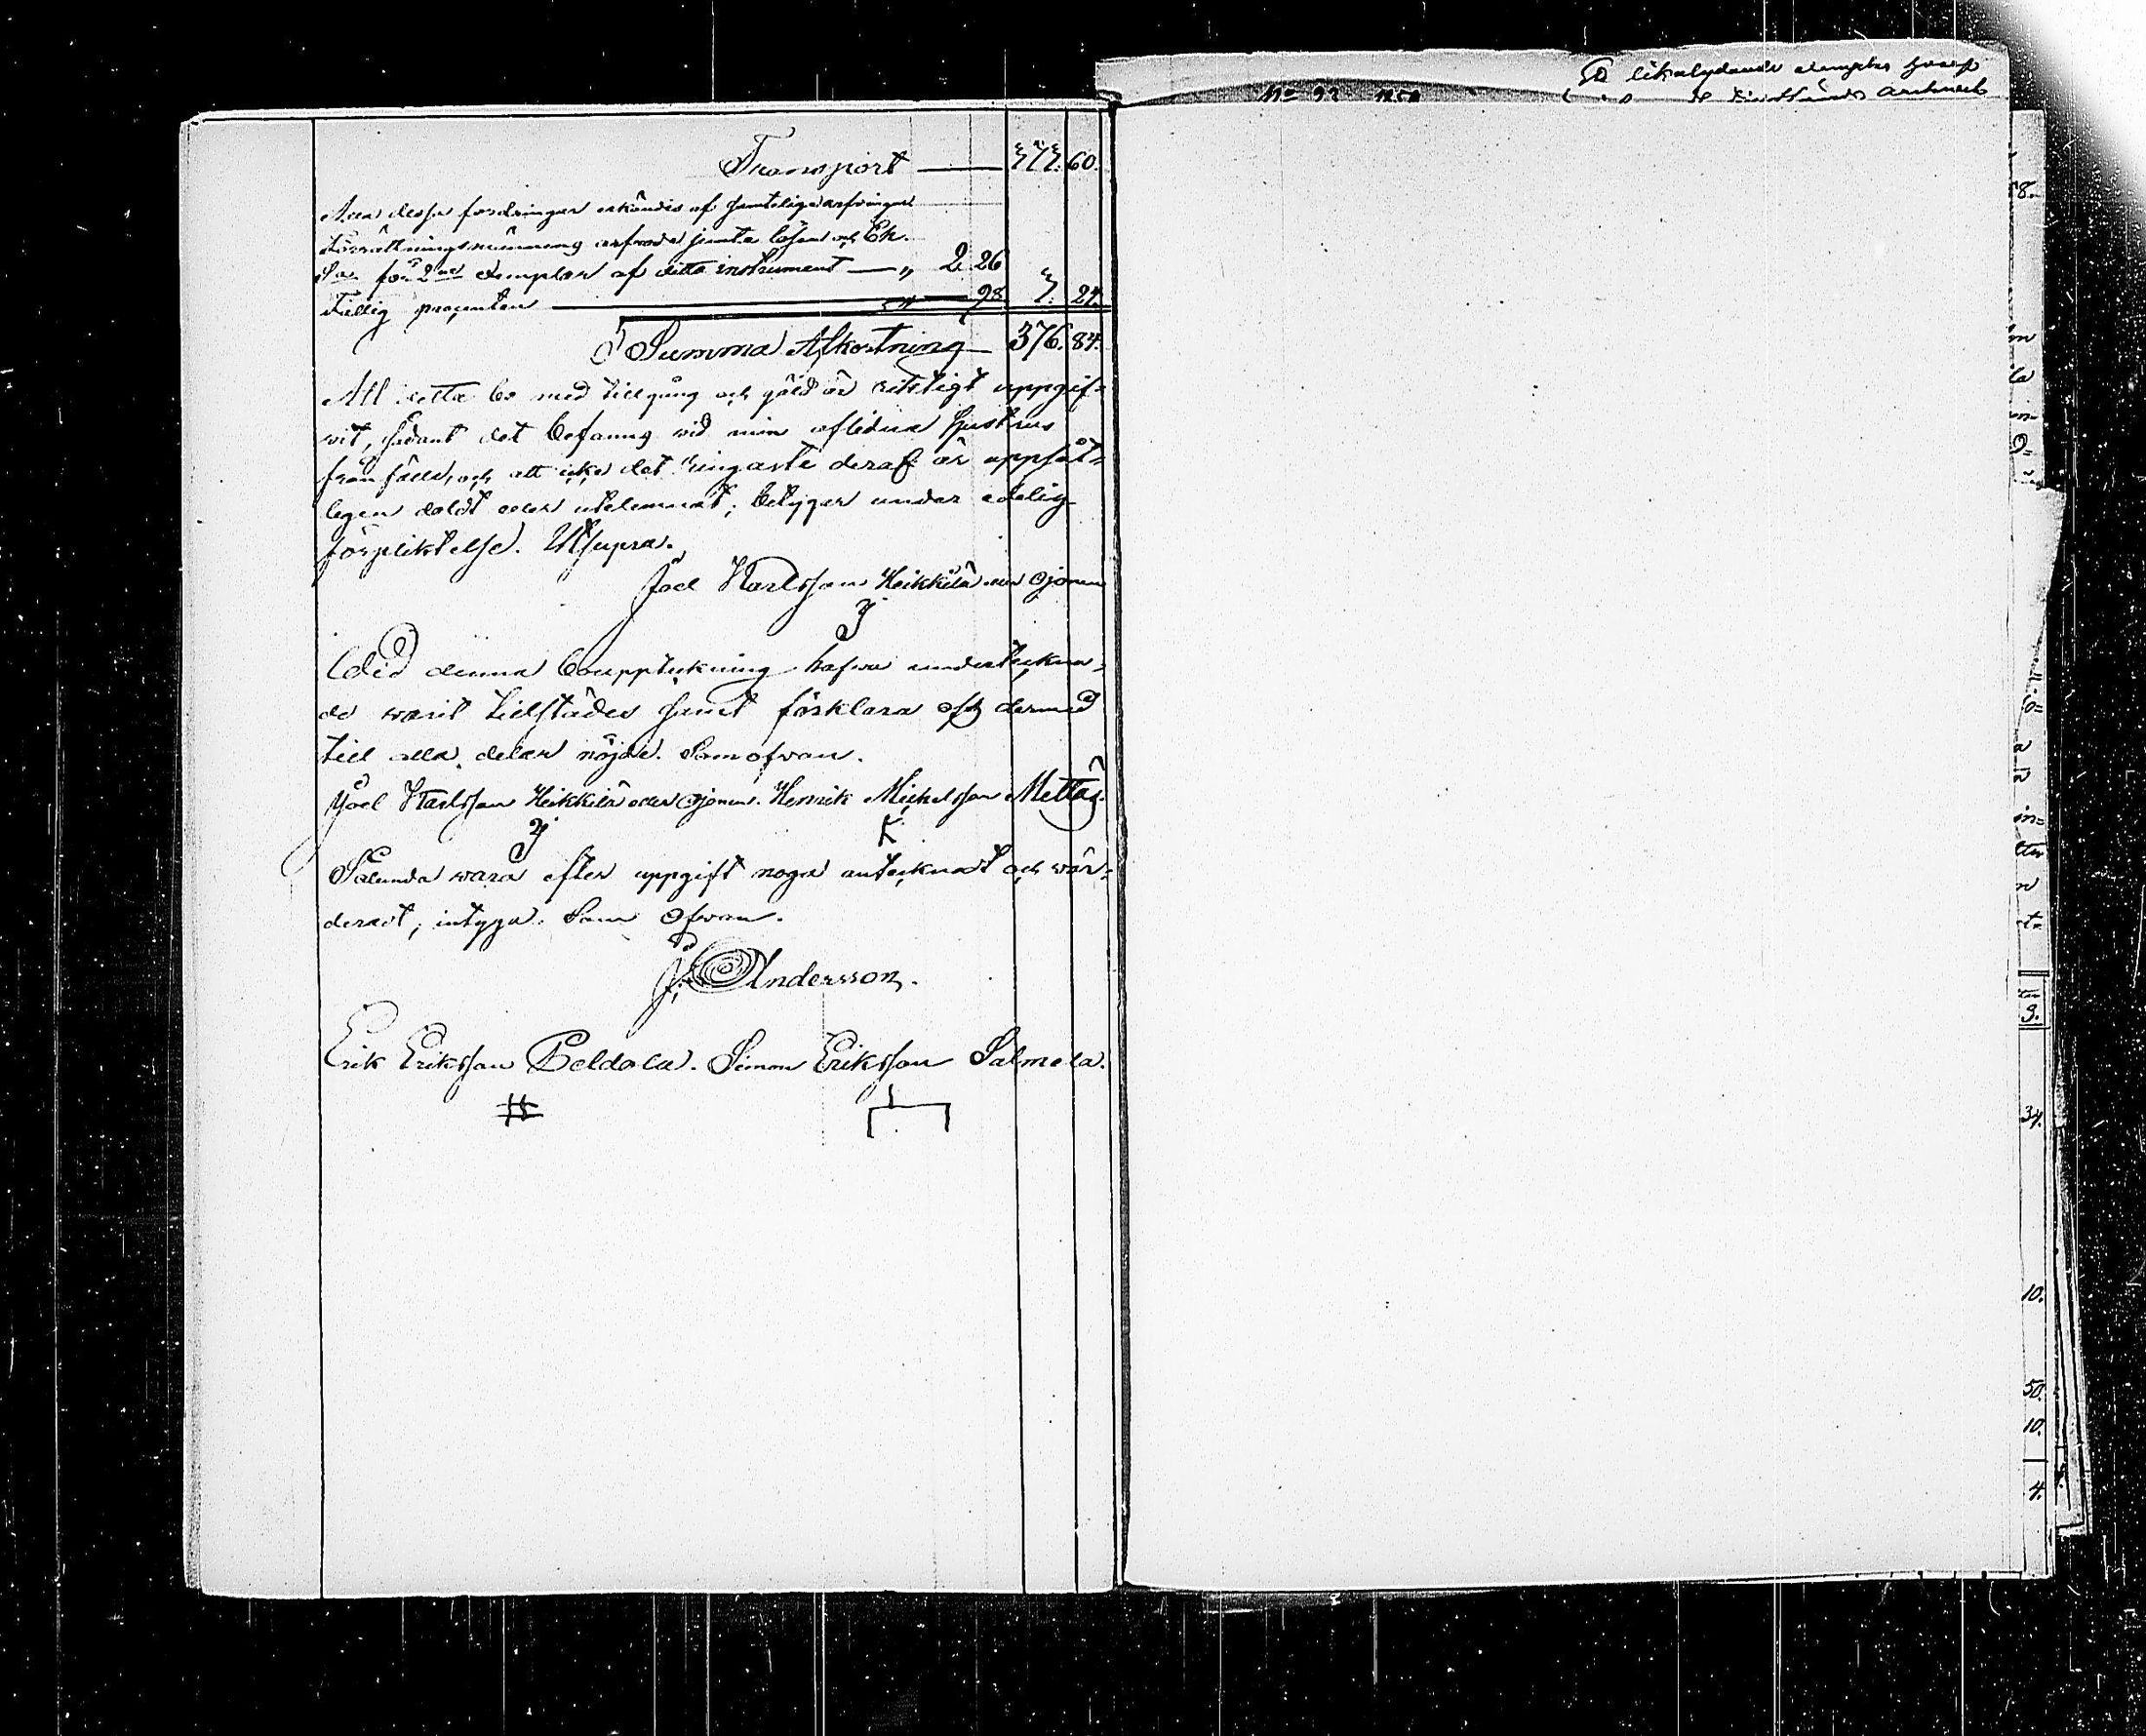 Transport — 373. 60.
Alla dessa fordringar erkändes af samtelige arfvingar
Förrättningsmännens arfvode jemte lösen och Ch.
Sa. för 2ne exemplar af detta instrument — „ 2 26
Fattig procenten — „ — 98. 3. 24.
Summa Afkortning — 376. 84.
Att detta bo med tillgång och gäld är riktigt uppgif=
vit, sådant det befanns vid min aflidna hustrus
frånfälle, och att icke det ringaste deraf är uppsåt=
ligen doldt eller utelemnat, betygar under edelig
förpliktelse. Utsupra.
Joel Karlsson Heikkilä eller Ojonen
Vid denna bouppteckning hafva underteckna=
de warit tillstädes samt förklara oss dermed
till alla delar nöjde. Som ofvan.
Joel Karlsson Heikkilä eller Ojonen. Henrik Michelsson Mettäs.
K
Sålunda vara efter uppgift noga antecknadt och vär=
deradt, intyga. Som Ofvan.
J. Andersson.
Erik Eriksson Peldola. Simon Eriksson Salmela.
likalydande exemplar
No 92 1850
58.
9.
34.
10.
50.
10.
4.